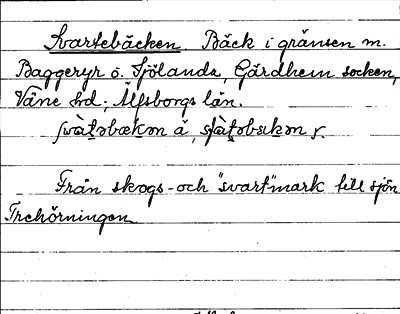 Svartebäcken. Bäck i gränsen m.
Baggeryr o. Sjölanda, Gärdhem socken,
Väne hd; Älfsborgs län.
Från skogs- och "svart"mark till sjön
Trehörningen